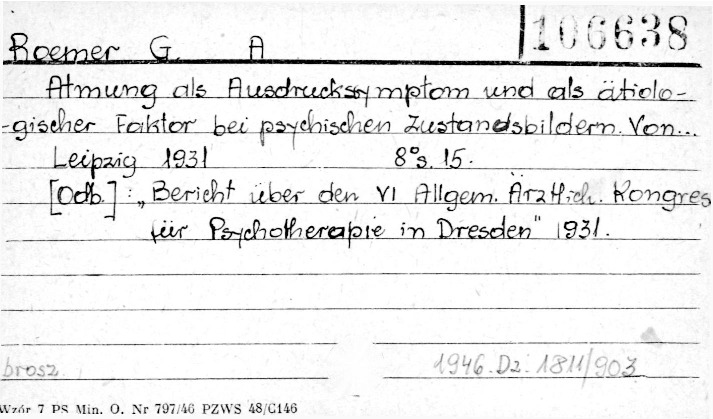 106638
Roemer G. A
Atmung als Ausdruckssymptom und als ätiolo-
-gischer Faktor bei psychischen Zustandsbildern. Von...
Leipzig 1931 8° s. 15.
[Odb.]: „Bericht über den VI Allgem. Ärztlich. Kongres
für Psychotherapie in Dresden" 1931.
brosz. 1946. Dz. 1811/903
Wzór 7 PS Min. O. Nr 797/46 PZWS 48/C146